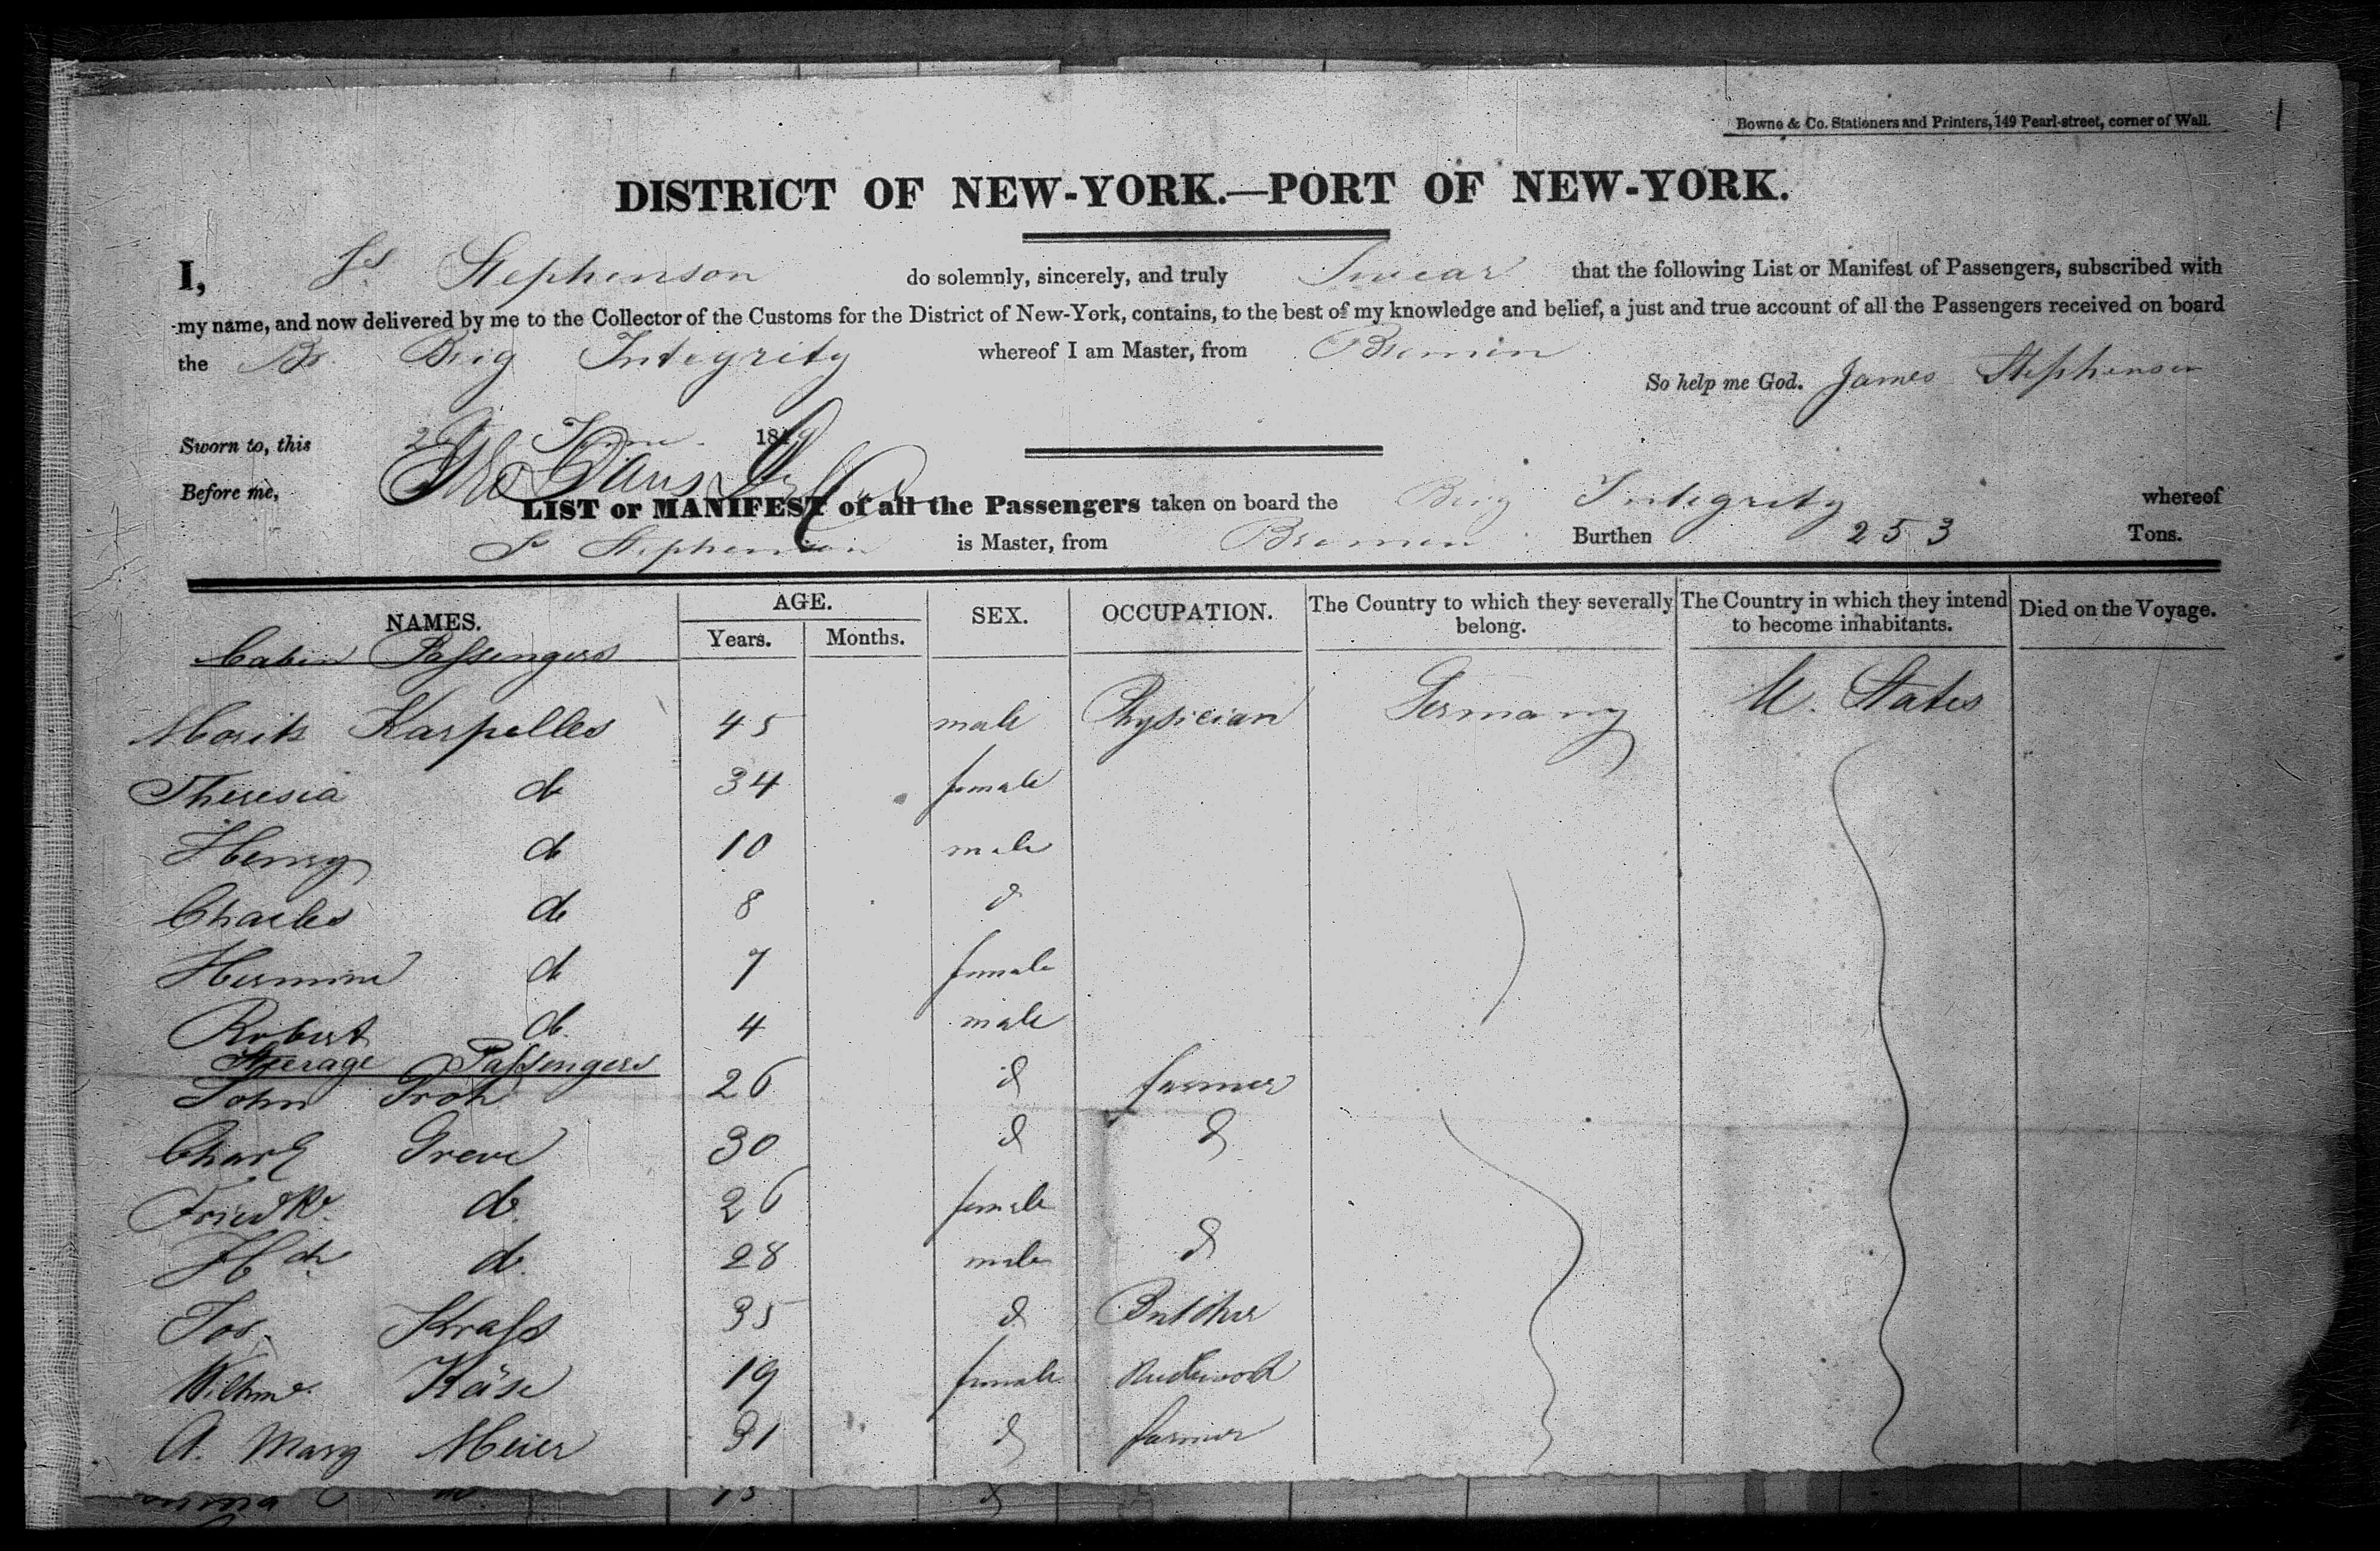 1
Bowne & Co. Stationers and Printers, 149 Pearl-street, corner of Wall.
DISTRICT OF NEW-YORK.—PORT OF NEW-YORK.
I, Js Stephenson do solemnly, sincerely, and truly Swear that the following List or Manifest of Passengers, subscribed with
my name, and now delivered by me to the Collector of the Customs for the District of New-York, contains, to the best of my knowledge and belief, a just and true account of all the Passengers received on board
the Br. Brig Integrity whereof I am Master, from Bremin
So help me God. James Stephenson
Sworn to, this June 184
Before me,
LIST or MANIFEST of all the Passengers taken on board the Brig Integrity whereof
Js Stephenson is Master, from Bremen Burthen 253 Tons.
NAMES. AGE. Years. Months. SEX. OCCUPATION. The Country to which they severally belong. The Country in which they intend to become inhabitants. Died on the Voyage.
Cabin Passengers
Morits Karpelles 45 male Physician Germany U. States
Theresia do 34 female
Henry do 10 male
Charles do 8 d
Hermine do 7 female
Robert do 4 male
Steerage Passengers
John Troh 26 d farmer
Charls Greve 30 d d
Friedke. do 26 female
Hch do 28 male d
Jos. Krass 35 d Butcher
Wilhme. Käse 19 female
A. Marg Meier 31 d farmer